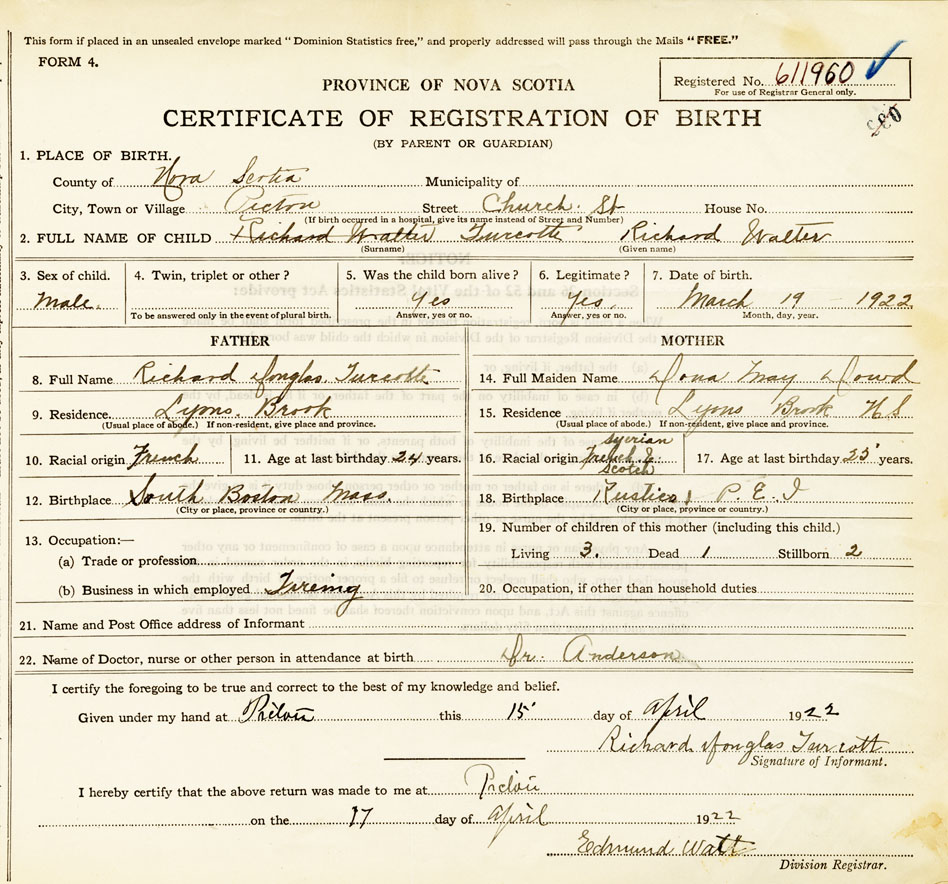 This form if placed in an unsealed envelope marked "Dominion Statistics free," and properly addressed will pass through the Mails "FREE."
FORM 4.
Registered No. 611960
For use of Registrar General only.
PROVINCE OF NOVA SCOTIA
CERTIFICATE OF REGISTRATION OF BIRTH
(BY PARENT OR GUARDIAN)
1. PLACE OF BIRTH.
County of Nova Scotia Municipality of
City, Town or Village Pictou Street Church. St House No.
(If birth occurred in a hospital, give its name instead of Street and Number)
2. FULL NAME OF CHILD Richard Walter Turcotte Richard Walter
(Surname) (Given name)
3. Sex of child. 4. Twin, triplet or other? 5. Was the child born alive? 6. Legitimate? 7. Date of birth.
Male. Yes Yes March 19 - 1922
To be answered only in the event of plural birth. Answer, yes or no. Answer, yes or no. Month, day, year.
FATHER MOTHER
8. Full Name Richard Douglas Turcotte 14. Full Maiden Name Dona May Dowd
9. Residence. Lyons. Brook 15. Residence Lyons Brook N S
(Usual place of abode.) If non-resident, give place and province. (Usual place of abode.) If non-resident, give place and province.
10. Racial origin French 11. Age at last birthday 24 years. 16. Racial origin Syrian French & Scotch 17. Age at last birthday 25 years.
12. Birthplace South Boston Mass. 18. Birthplace Rustico, P. E. I
(City or place, province or country.) (City or place, province or country.)
13. Occupation:— 19. Number of children of this mother (including this child.)
(a) Trade or profession Living 3. Dead 1 Stillborn 2
(b) Business in which employed Fireing 20. Occupation, if other than household duties
21. Name and Post Office address of Informant
22. Name of Doctor, nurse or other person in attendance at birth Dr. Anderson
I certify the foregoing to be true and correct to the best of my knowledge and belief.
Given under my hand at Pictou this 15 day of April 1922
Richard Douglas Turcott
Signature of Informant.
I hereby certify that the above return was made to me at Pictou
on the 17 day of April 1922
Edmund Watt
Division Registrar.